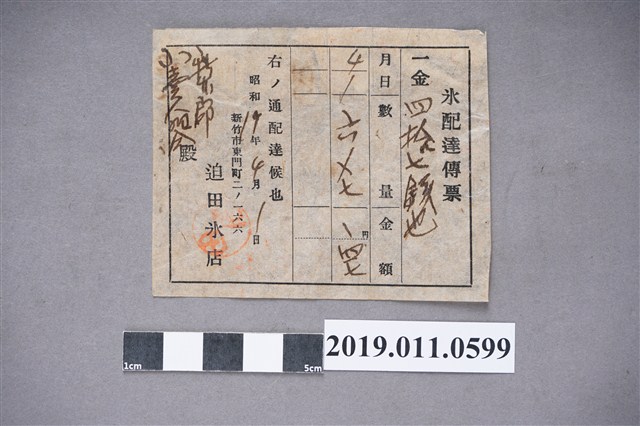 氷配達傳票
一金 四拾七錢也
月日 數量 金額
4/1 円 四七
右ノ通配達候也
昭和19年4月1日
新竹市東門町二ノ一六六
迫田氷店
殿
1cm 5cm
2019.011.0599